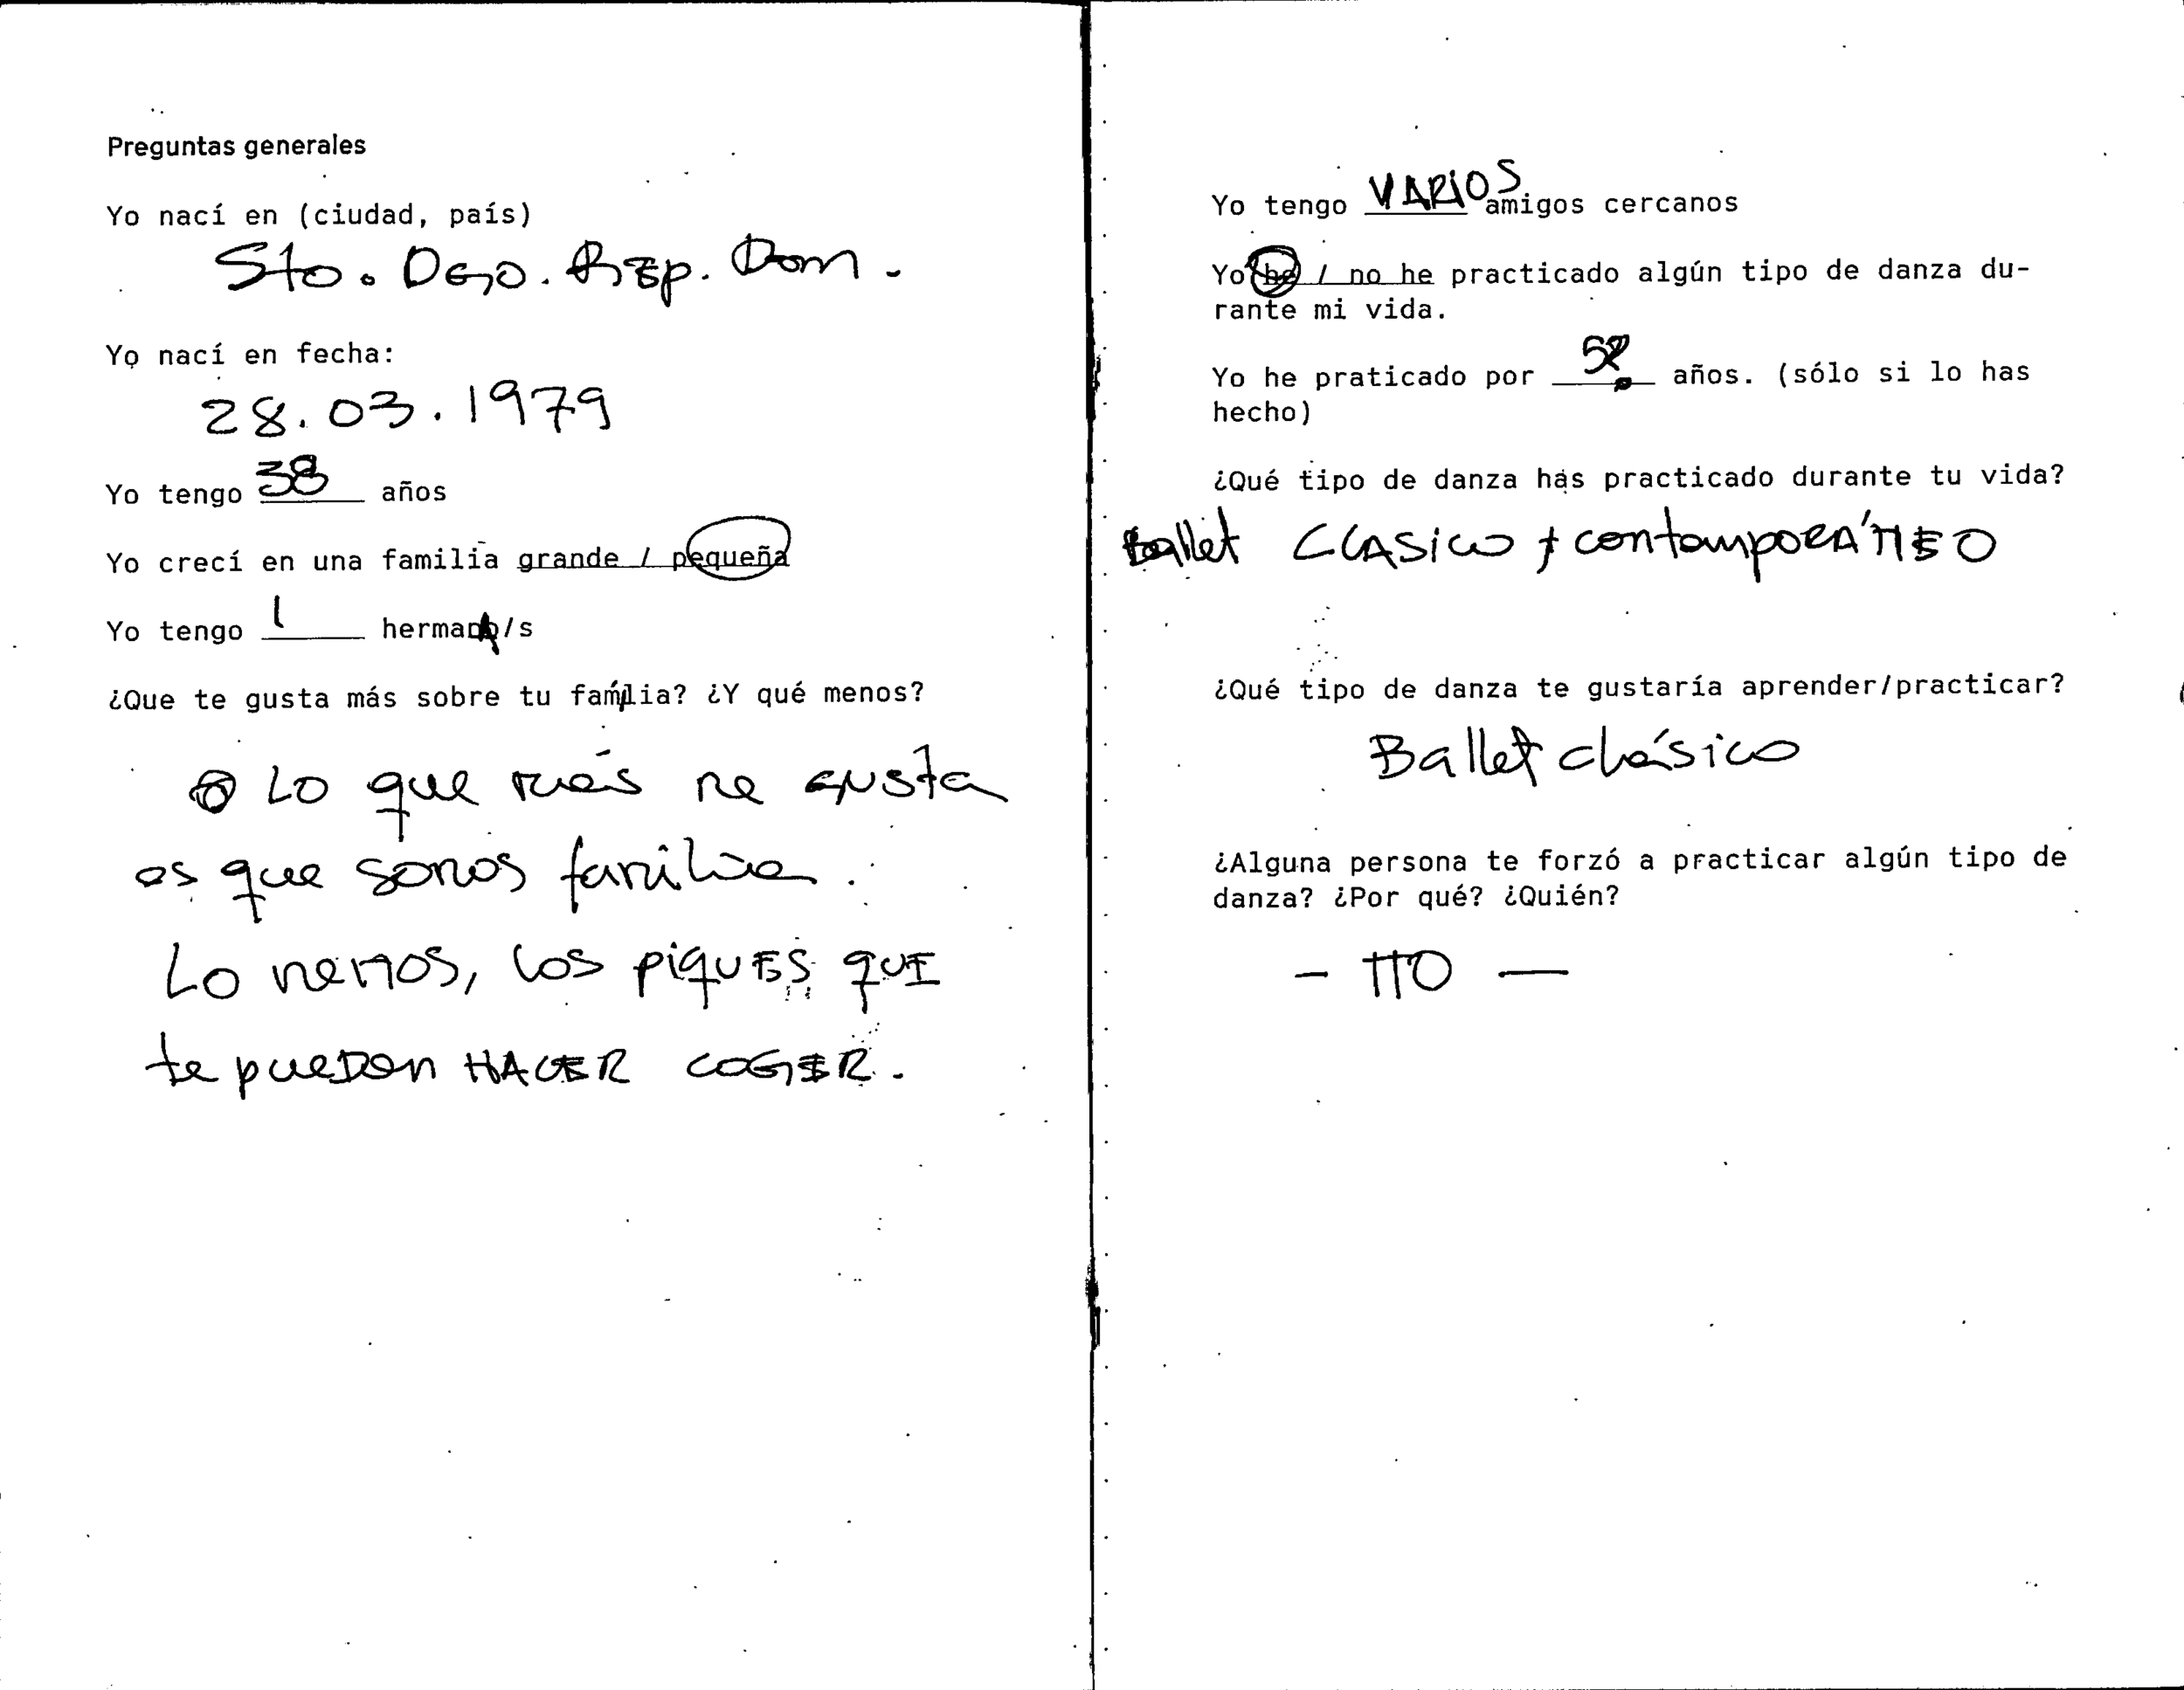 Preguntas generales
Yo nací en (ciudad, país)
Sto. Dgo. Rep. Dom.
Yo nací en fecha:
28.03.1979
Yo tengo 38 años
Yo crecí en una familia grande / pequeña
Yo tengo 1 hermana/s
¿Que te gusta más sobre tu familia? ¿Y qué menos?
Lo que más me gusta
es que somos familia.
Lo menos, los piques que
te pueden HACER COGER.
Yo tengo VARIOS amigos cercanos
Yo he / no he practicado algún tipo de danza du-
rante mi vida.
Yo he praticado por 5? años. (sólo si lo has
hecho)
¿Qué tipo de danza has practicado durante tu vida?
Ballet CLASICO y contemporÁNEO
¿Qué tipo de danza te gustaría aprender/practicar?
Ballet clásico
¿Alguna persona te forzó a practicar algún tipo de
danza? ¿Por qué? ¿Quién?
- NO -